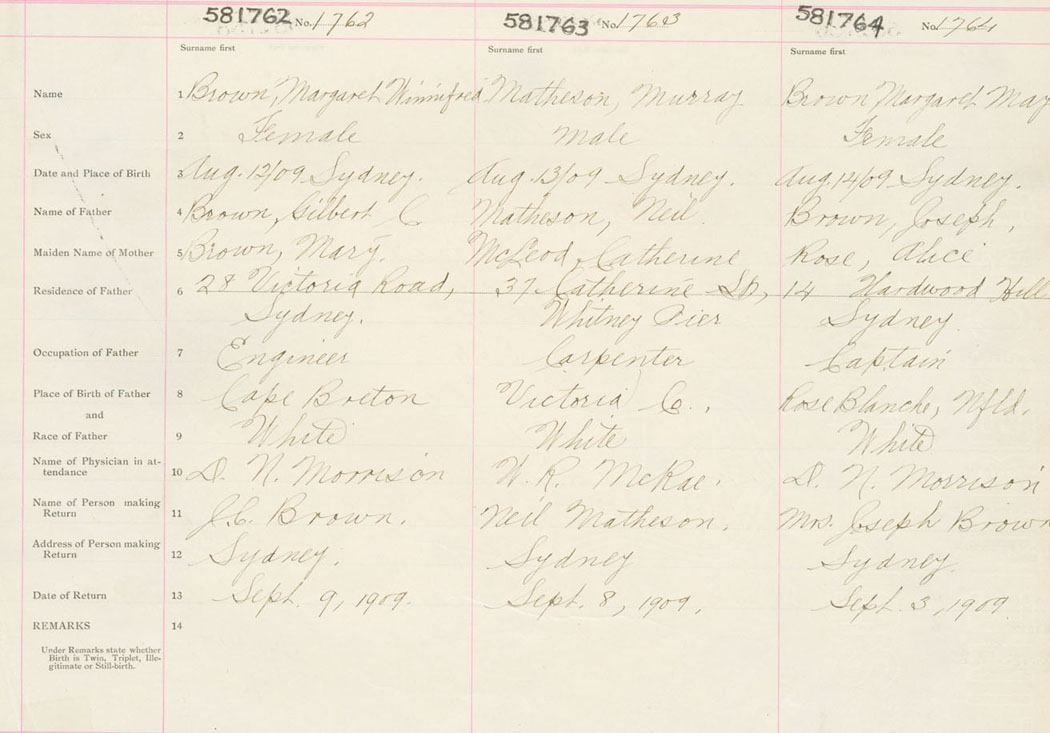 581762 No. 1762 581763 No. 1763 581764 No. 1764
Surname first Surname first Surname first
Name 1 Brown, Margaret Winnifred Matheson, Murray Brown Margaret May
Sex 2 Female Male Female
Date and Place of Birth 3 Aug. 12/09 Sydney. Aug 13/09 Sydney. Aug. 14/09 Sydney.
Name of Father 4 Brown, Gilbert C Matheson, Neil Brown, Joseph,
Maiden Name of Mother 5 Brown, Mary. McLeod, Catherine Rose, Alice
Residence of Father 6 28 Victoria Road, 37 Catherine St, 14 Hardwood Hill
Sydney. Whitney Pier Sydney
Occupation of Father 7 Engineer Carpenter Captain
Place of Birth of Father 8 Cape Breton Victoria C., Rose Blanche, Nfld.
and
Race of Father 9 White White White
Name of Physician in at-
tendance 10 D. N. Morrison W. R. McRae. D. N. Morrison
Name of Person making
Return 11 J.C. Brown. Neil Matheson. Mrs. Joseph Brown
Address of Person making
Return 12 Sydney. Sydney Sydney.
Date of Return 13 Sept. 9, 1909. Sept. 8, 1909. Sept. 3, 1909
REMARKS 14
Under Remarks state whether
Birth is Twin, Triplet, Ille-
gitimate or Still-birth.